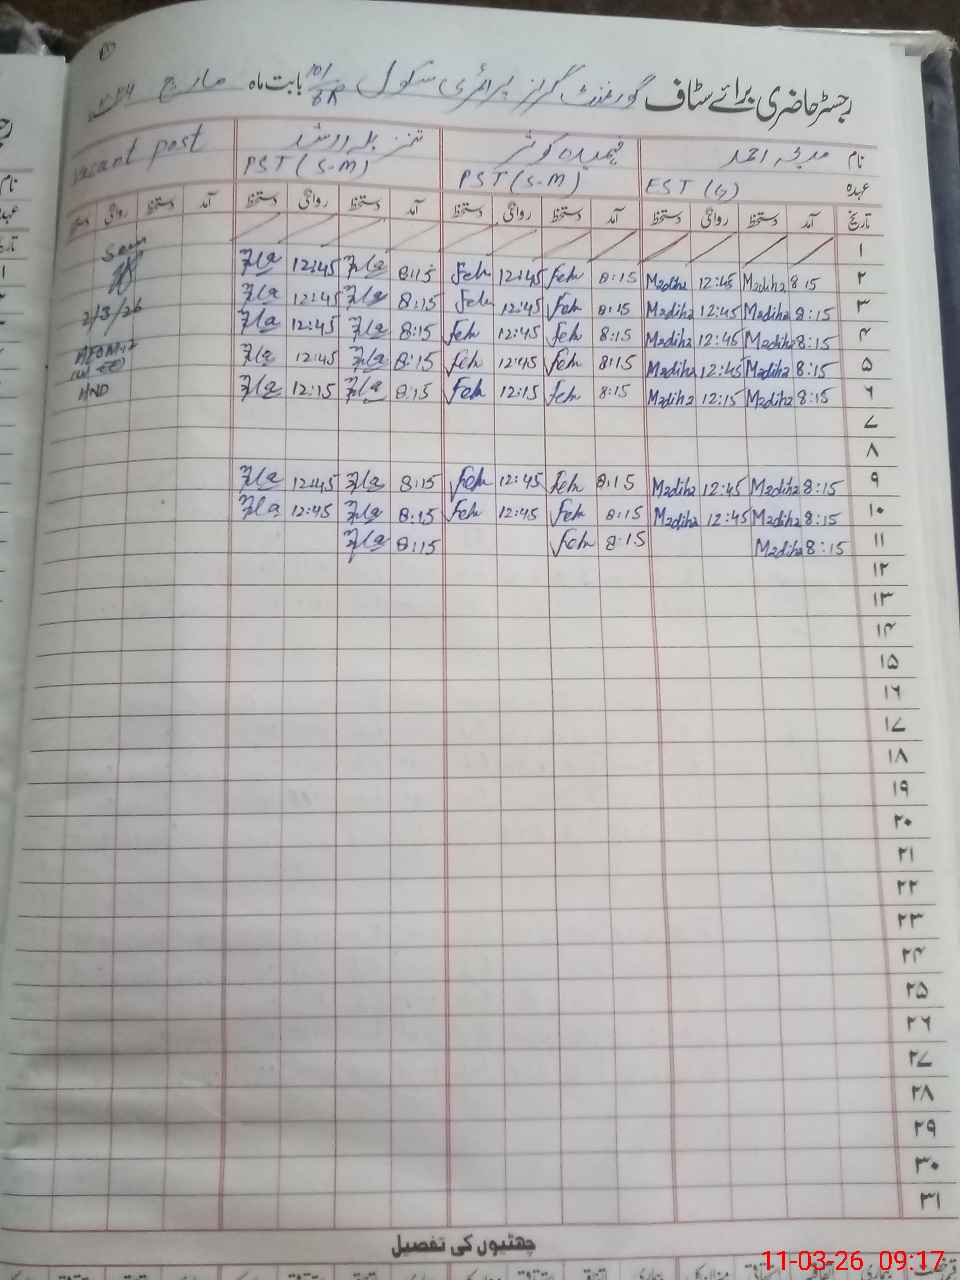 رجسٹر حاضری برائے سٹاف گورنمنٹ گرلز پرائمری سکول 101/6R بابت ماہ مارچ
نام مدیحہ احمد فہمیدہ کوثر vacant post
عہدہ EST (G) PST (S-M) PST (S-M)
تاریخ آمد دستخط روانگی دستخط آمد دستخط روانگی دستخط آمد دستخط روانگی دستخط آمد دستخط روانگی
۱
۲ 8:15 Madiha 12:45 Madiha 8:15 Feh 12:45 Feh 8:15 12:45
۳ 8:15 Madiha 12:45 Madiha 8:15 Feh 12:45 Feh 8:15 12:45 2/3/26
۴ 8:15 Madiha 12:45 Madiha 8:15 Feh 12:45 Feh 8:15 12:45
۵ 8:15 Madiha 12:45 Madiha 8:15 Feh 12:45 Feh 8:15 12:45
۶ 8:15 Madiha 12:15 Madiha 8:15 Feh 12:15 Feh 8:15 12:15 HND
۷
۸
۹ 8:15 Madiha 12:45 Madiha 8:15 Feh 12:45 Feh 8:15 12:45
۱۰ 8:15 Madiha 12:45 Madiha 8:15 Feh 12:45 Feh 8:15 12:45
۱۱ 8:15 Madiha 8:15 Feh 8:15
۱۲
۱۳
۱۴
۱۵
۱۶
۱۷
۱۸
۱۹
۲۰
۲۱
۲۲
۲۳
۲۴
۲۵
۲۶
۲۷
۲۸
۲۹
۳۰
۳۱
چھٹیوں کی تفصیل
11-03-26 09:17